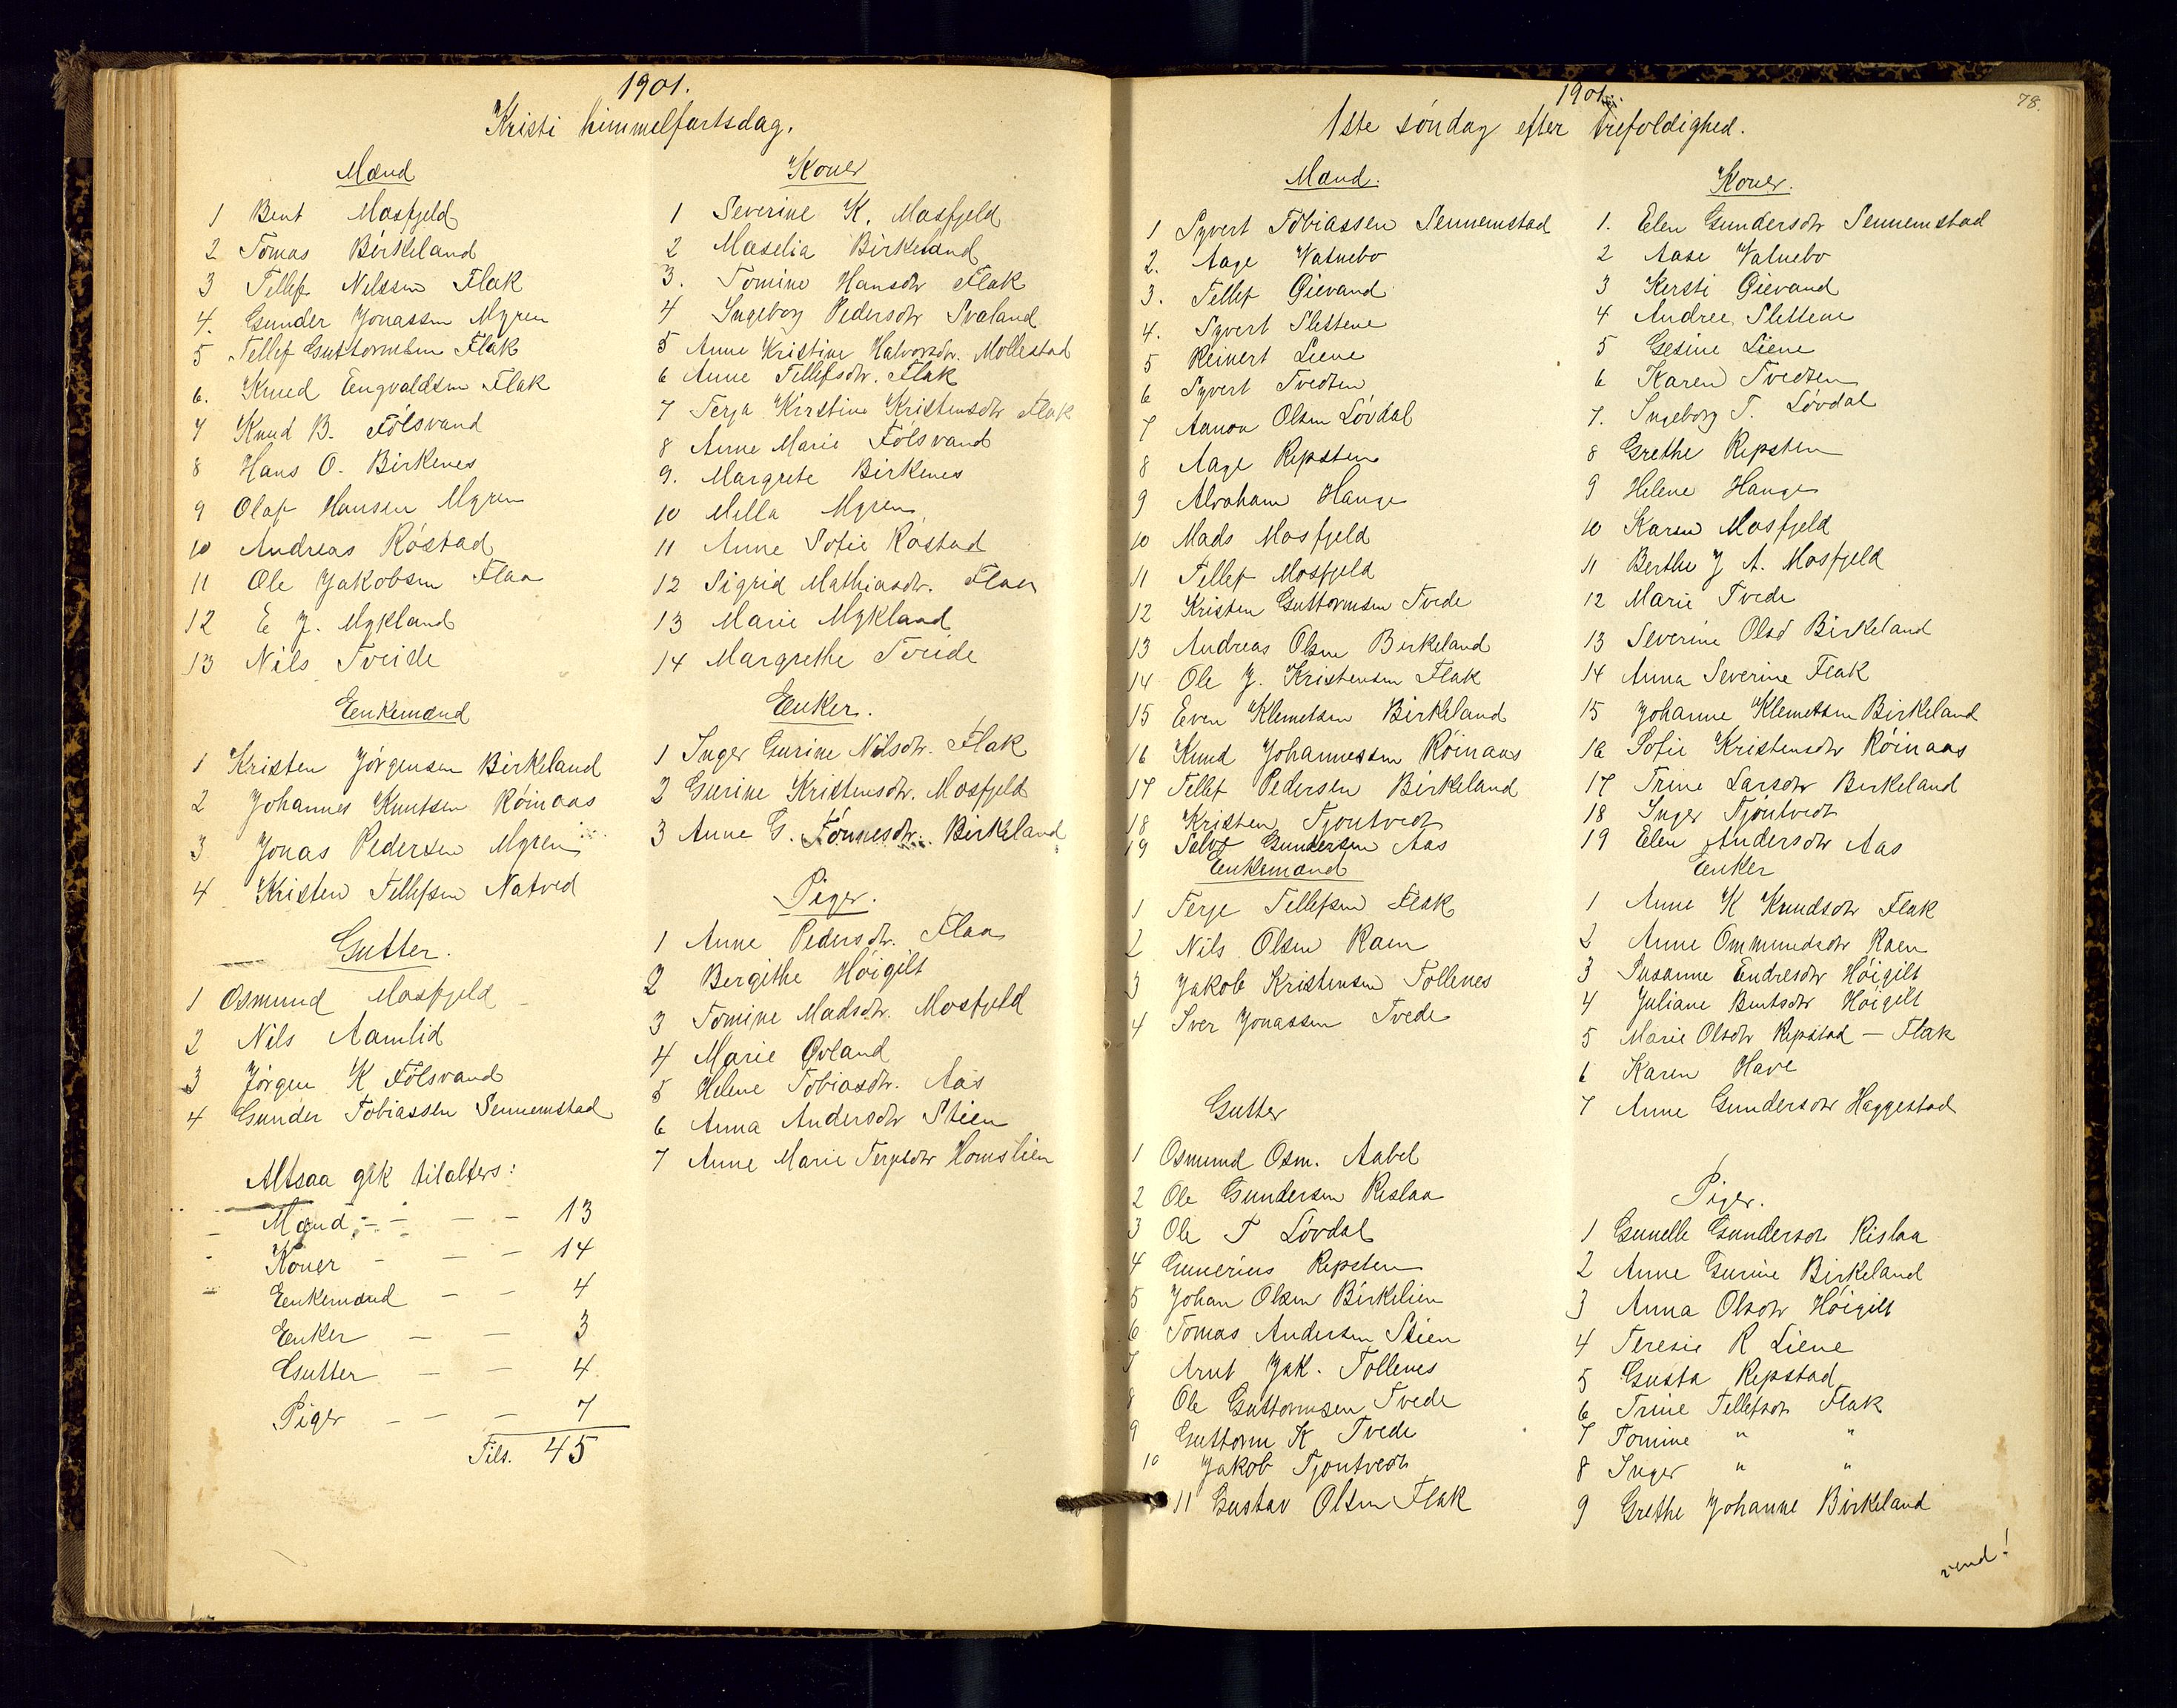 1901.
Kristi himmelfartsdag.
Mænd
1 Bent Mosfjeld
2 Tomas Birkeland
3 Tellef Nilssen Flak
4. Gunder Jonassen Myren
5 Tellef Guttormsen Flak
6. Knud Engvaldsen Flak
7 Knud B. Fölsvand
8 Hans O. Birkenes
9 Olaf Hansen Myren
10 Andreas Röstad
11 Ole Jakobsen Flaa
12 E J. Mykland
13 Nils Tveide
Enkemænd
1 Kristen Jörgensen Birkeland
2 Johannes Knutsen Röinaas
3 Jonas Pedersen Myren
4 Kristen Tellefsen Natved
Gutter.
1 Osmund Mosfjeld
2 Nils Aamlid
3 Jörgen K Fölsvand
4 Gunder Tobiassen Sennemstad
Altsaa gik tilalters:
Mænd - - - 13
Koner - - - 14
Enkemænd - - 4
Enker - - 3
Gutter - - 4
Piger - - - 7
Tils. 45
Koner
1 Severine K. Mosfjeld
2 Maselia Birkeland
3. Tomine Hansdtr Flak
4 Ingeborg Pedersdtr Svaland
5 Anne Kristine Halvorsdtr. Mollestad
6 Anne Tellefsdtr. Flak
7 Terja Kirstine Kristensdtr Flak
8 Anne Marie Fölsvand
9. Margrete Birkenes
10 Milla Myren
11 Anne Sofie Röstad
12 Sigrid Mathiasdtr. Flaa
13 Marie Mykland
14 Margrethe Tveide
Enker.
1 Inger Gurine Nilsdtr. Flak
2 Gurine Kristensdtr. Mosfjeld
3 Anne G. Tönnesdtr. Birkeland
Piger.
1 Anne Pedersdtr. Flaa
2 Bergithe Höigilt
3 Tomine Madsdtr. Mosfjeld
4 Marie Øvland
5 Helene Tobiasdtr. Aas
6 Anna Andersdtr Stien
7 Anne Marie Terjesdtr Homslien
78.
1901.
1ste söndag efter trefoldighed.
Mænd.
1 Syvert Tobiassen Sennemstad
2. Aage Vatnebo
3. Tellef Gievand
4. Syvert Slettene
5 Reinert Liene
6 Syvert Tvedten
7 Aanon Olsen Lövdal
8 Aage Repsten
9 Abraham Hauge
10 Mads Mosfjeld
11 Tellef Mosfjeld
12 Kristen Guttormsen Tvede
13 Andreas Olsen Birkeland
14 Ole J. Kristensen Flak
15 Even Klemetsen Birkeland
16 Knud Johannessen Röinaas
17 Tellef Pedersen Birkeland
18 Kristen Tjöntvedt
19 Salve Gundersen Aas
Enkemænd
1 Terje Tellefsen Flak
2 Nils Olsen Raen
3 Jakob Kristensen Tollenes
4 Iver Jonassen Tvede
Gutter
1 Osmund Osm. Aabel
2 Ole Gundersen Rislaa
3 Ole T Lövdal
4 Gunerius Repsten
5 Johan Olsen Birkelien
6 Tomas Andersen Stien
7 Arnt Jak. Tollenes
8 Ole Guttormsen Tvede
9 Guttorm K Tvede
10 Jakob Tjöntvedt
11 Gustav Olsen Flak
Koner.
1. Elen Gundersdtr Sennemstad
2 Aase Vatnebo
3 Kersti Gievand
4 Andree Slettene
5 Gesine Liene
6 Karen Tvedten
7. Ingeborg T. Lövdal
8 Grethe Repsten
9 Helene Hauge
10 Karen Mosfjeld
11 Berthe J A. Mosfjeld
12 Marie Tvede
13 Severine Olsd Birkeland
14 Anna Severine Flak
15 Johanne Klemetsen Birkeland
16 Sofie Kristensdtr Röinaas
17 Trine Larsdtr Birkeland
18 Inger Tjöntvedt
19 Elen Andersdtr Aas
Enker
1 Anne K Knudsdtr Flak
2 Anne Ommundsdtr Raen
3 Susanne Endresdtr Höigilt
4 Juliane Bentsdtr Höigilt
5 Marie Olsdtr Repstad - Flak
6 Karen Have
7 Anne Gundersdtr Haggestad
Piger.
1 Gunelle Gundersdtr Rislaa
2 Anne Gurine Birkeland
3 Anna Olsdtr Höigilt
4 Teresie R Liene
5 Gusta Repstad
6 Trine Tellefsdtr Flak
7 Tomine " "
8 Inger " "
9 Grethe Johanne Birkeland
vend!